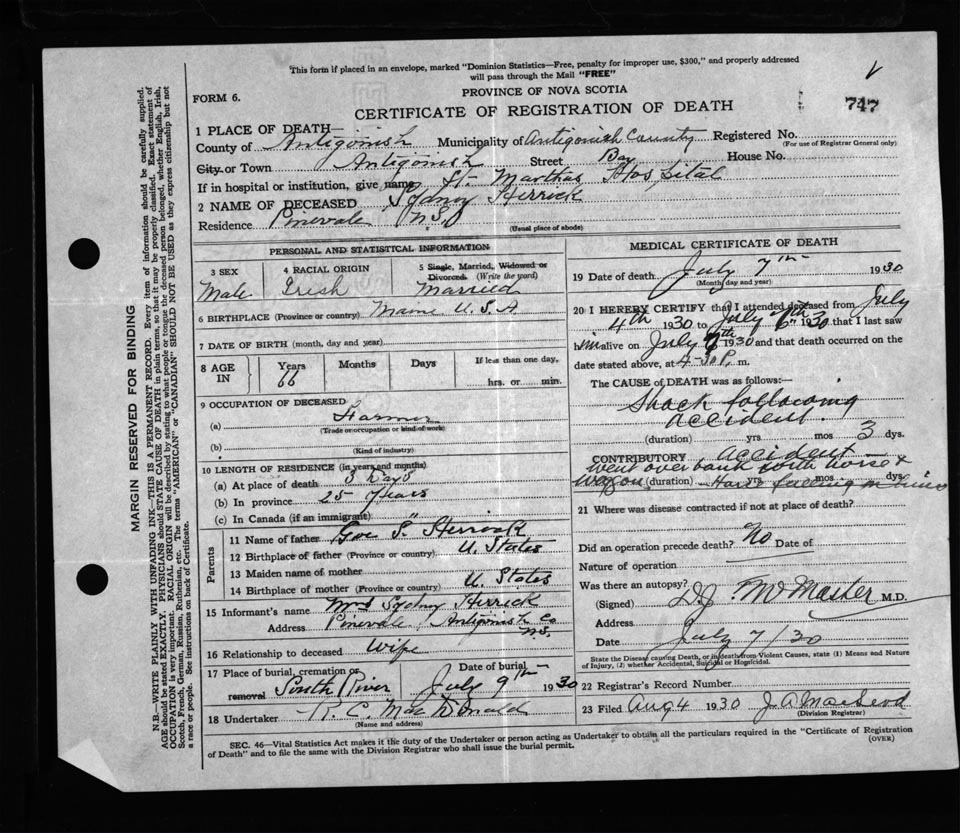 This form if placed in an envelope, marked "Dominion Statistics—Free, penalty for improper use, $300," and properly addressed
will pass through the Mail "FREE"
FORM 6.
PROVINCE OF NOVA SCOTIA
CERTIFICATE OF REGISTRATION OF DEATH
747
1 PLACE OF DEATH—
County of Antigonish Municipality of Antigonish County Registered No.
(For use of Registrar General only)
City or Town Antigonish Street Bay House No.
If in hospital or institution, give name St. Marthas Hospital
2 NAME OF DECEASED Sydny Herrick
Residence Pinevale N.S.
(Usual place of abode)
PERSONAL AND STATISTICAL INFORMATION
3 SEX 4 RACIAL ORIGIN 5 Single, Married, Widowed or
Divorced. (Write the word)
Male Irish Married
6 BIRTHPLACE (Province or country) Maine U.S.A
7 DATE OF BIRTH (month, day and year)
8 AGE IN Years Months Days If less than one day,
66 hrs. or min.
9 OCCUPATION OF DECEASED
(a) Farmer
(Trade or occupation or kind of work)
(b)
(Kind of industry)
10 LENGTH OF RESIDENCE (in years and months)
(a) At place of death 3 Days
(b) In province 25 Years
(c) In Canada (if an immigrant) "
Parents
11 Name of father Geo S. Herrick
12 Birthplace of father (Province or country) U. States
13 Maiden name of mother
14 Birthplace of mother (Province or country) U. States
15 Informant's name Mrs Sydny Herrick
Address Pinevale Antigonish Co
N.S.
16 Relationship to deceased Wife
17 Place of burial, cremation or Date of burial
removal South River July 9th 1930
18 Undertaker R. C. MacDonald
(Name and address)
MEDICAL CERTIFICATE OF DEATH
19 Date of death July 7th 1930
(Month, day and year)
20 I HEREBY CERTIFY that I attended deceased from July
4th 1930 to July 6th 1930 that I last saw
him alive on July 1930 and that death occurred on the
date stated above, at 4-30 P. m.
The CAUSE of DEATH was as follows:—
Shock following
accident.
(duration) yrs mos 3 dys.
CONTRIBUTORY accident
went over bank with horse &
wagon (duration) yrs mos dys
21 Where was disease contracted if not at place of death?
Did an operation precede death? No Date of
Nature of operation
Was there an autopsy?
(Signed) McMaster M.D.
Address
Date July 7/30
State the Disease causing Death, or in death from Violent Causes, state (1) Means and Nature
of Injury, (2) whether Accidental, Suicidal or Homicidal.
22 Registrar's Record Number
23 Filed Aug 4 1930 J A MacLeod
(Division Registrar)
SEC. 46—Vital Statistics Act makes it the duty of the Undertaker or person acting as Undertaker to obtain all the particulars required in the "Certificate of Registration
of Death" and to file the same with the Division Registrar who shall issue the burial permit.
(OVER)
MARGIN RESERVED FOR BINDING
N.B.—WRITE PLAINLY WITH UNFADING INK—THIS IS A PERMANENT RECORD. Every item of information should be carefully supplied.
AGE should be stated EXACTLY. PHYSICIANS should STATE CAUSE OF DEATH in plain terms, so that it may be properly classified. Exact statement of
OCCUPATION is very important. RACIAL ORIGIN will be described by stating to what people or tongue the deceased person belonged, whether English, Irish,
Scotch, French, German, Russian, Ruthenian, etc. The terms "AMERICAN" or "CANADIAN" SHOULD NOT BE USED as they express citizenship but not
a race or people. See instructions on back of Certificate.